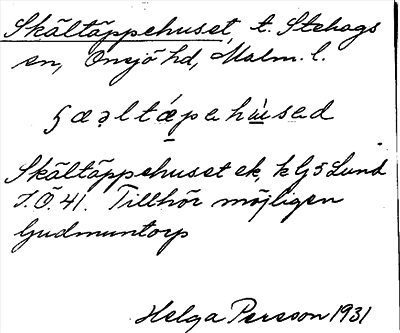 Skältäppehuset, t. Stehags
sn, Onsjö hd, Malm. l.
ʂæəltǽpahùsəd
Skältäppehuset ek, k Gj5 Lund
J.Ö. 41. Tillhör möjligen
Gudmuntorp
Helga Persson 1931